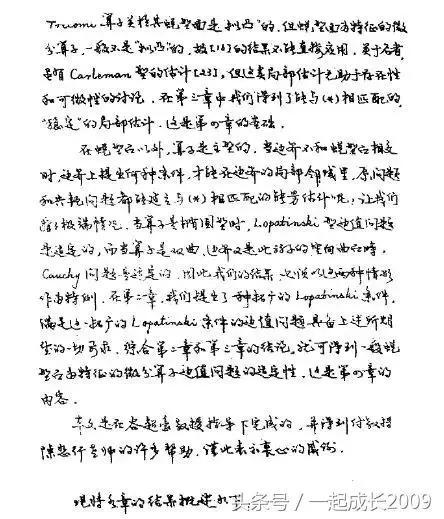 Tricomi 算子关于其蜕型面是"拟凸"的,但蜕型面为特征的微
分算子,一般不是"拟凸"的,故[18]的结果不能直接应用。关于后者,
虽有 Carleman 型的估计[23],但这类局部估计无助于存在性
和可微性的讨论。在第三章中我们得到了能与(*)相匹配的
"稳定"的局部估计,这是第四章的基础。
在蜕型面以外,算子是主型的,当边界不和蜕型面相交
时,边界上提出何种条件,才能在边界的局部邻域里,原问题
和共轭问题都能建立与(*)相匹配的能量估计呢?让我们
极端情况,当算子是椭圆型时,Lopatinski 型边值问题
是适定的,而当算子是双曲,边界又是此算子的空间曲面时,
Cauchy 问题是适定的,因此我们的结果必须以这两种情形
作为特例。在第二章,我们提出了一种推广的 Lopatinski 条件,
满足这一推广的 Lopatinski 条件的边值问题具备上述所期
望的一切要求。综合第二章和第三章的结论,就可得到一般蜕
型面为特征的微分算子边值问题的适定性,这是第四章的
内容。
本文是在谷超豪教授指导下完成的,并得到
陈恕行老师的许多帮助,谨此表示衷心的感谢。
现将各章的结果概述如下
头条号 / 一起成长2009